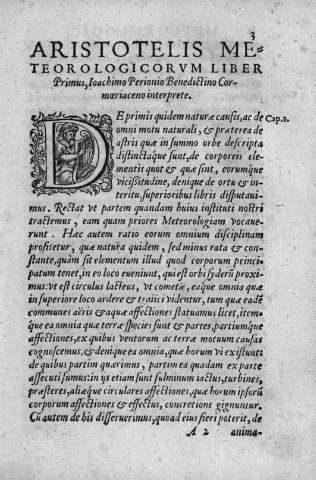 3
ARISTOTELIS ME-
TEOROLOGICORVM LIBER
Primus, Ioachimo Perionio Benedictino Cor-
mœriaceno interprete.
DE primis quidem naturæ causis, ac de Cap.1.
omni motu naturali, & præterea de
astris quæ in summo orbe descripta
distinctaque sunt, de corporeis ele-
mentis quot & quæ sint, eorumque
vicissitudine, denique de ortu & in-
teritu superioribus libris disputaui-
mus. Restat vt partem quandam huius instituti nostri
tractemus, eam quam priores Meteorologiam vocaue-
runt. Hæc autem ratio eorum omnium disciplinam
profitetur, quæ natura quidem, sed minus rata & con-
stante, quàm sit elementum illud quod corporum princi-
patum tenet, in eo loco eueniunt, qui est orbi syderũ proxi-
mus: vt est circulus lacteus, vt cometæ, eaque omnia quæ
in superiore loco ardere & traiici videntur, tum quæ eadẽ
communes aëris & aquæ affectiones statuamus licet, item-
que ea omnia quæ terræ species sunt & partes, partiumque
affectiones, ex quibus ventorum ac terræ motuum causas
cognoscemus, & denique ea omnia, quæ horum vi existunt:
de quibus partim quærimus, partim ea quadam ex parte
assecuti sumus: in ijs etiam sunt fulminum iactus, turbines,
præsteres, aliæque circulares affectiones, quæ horum ipsorũ
corporum affectiones & effectus, concretione gignuntur.
Cũ autem de his disseruerimus, quoad eius fieri poterit, de
A 2 anima-